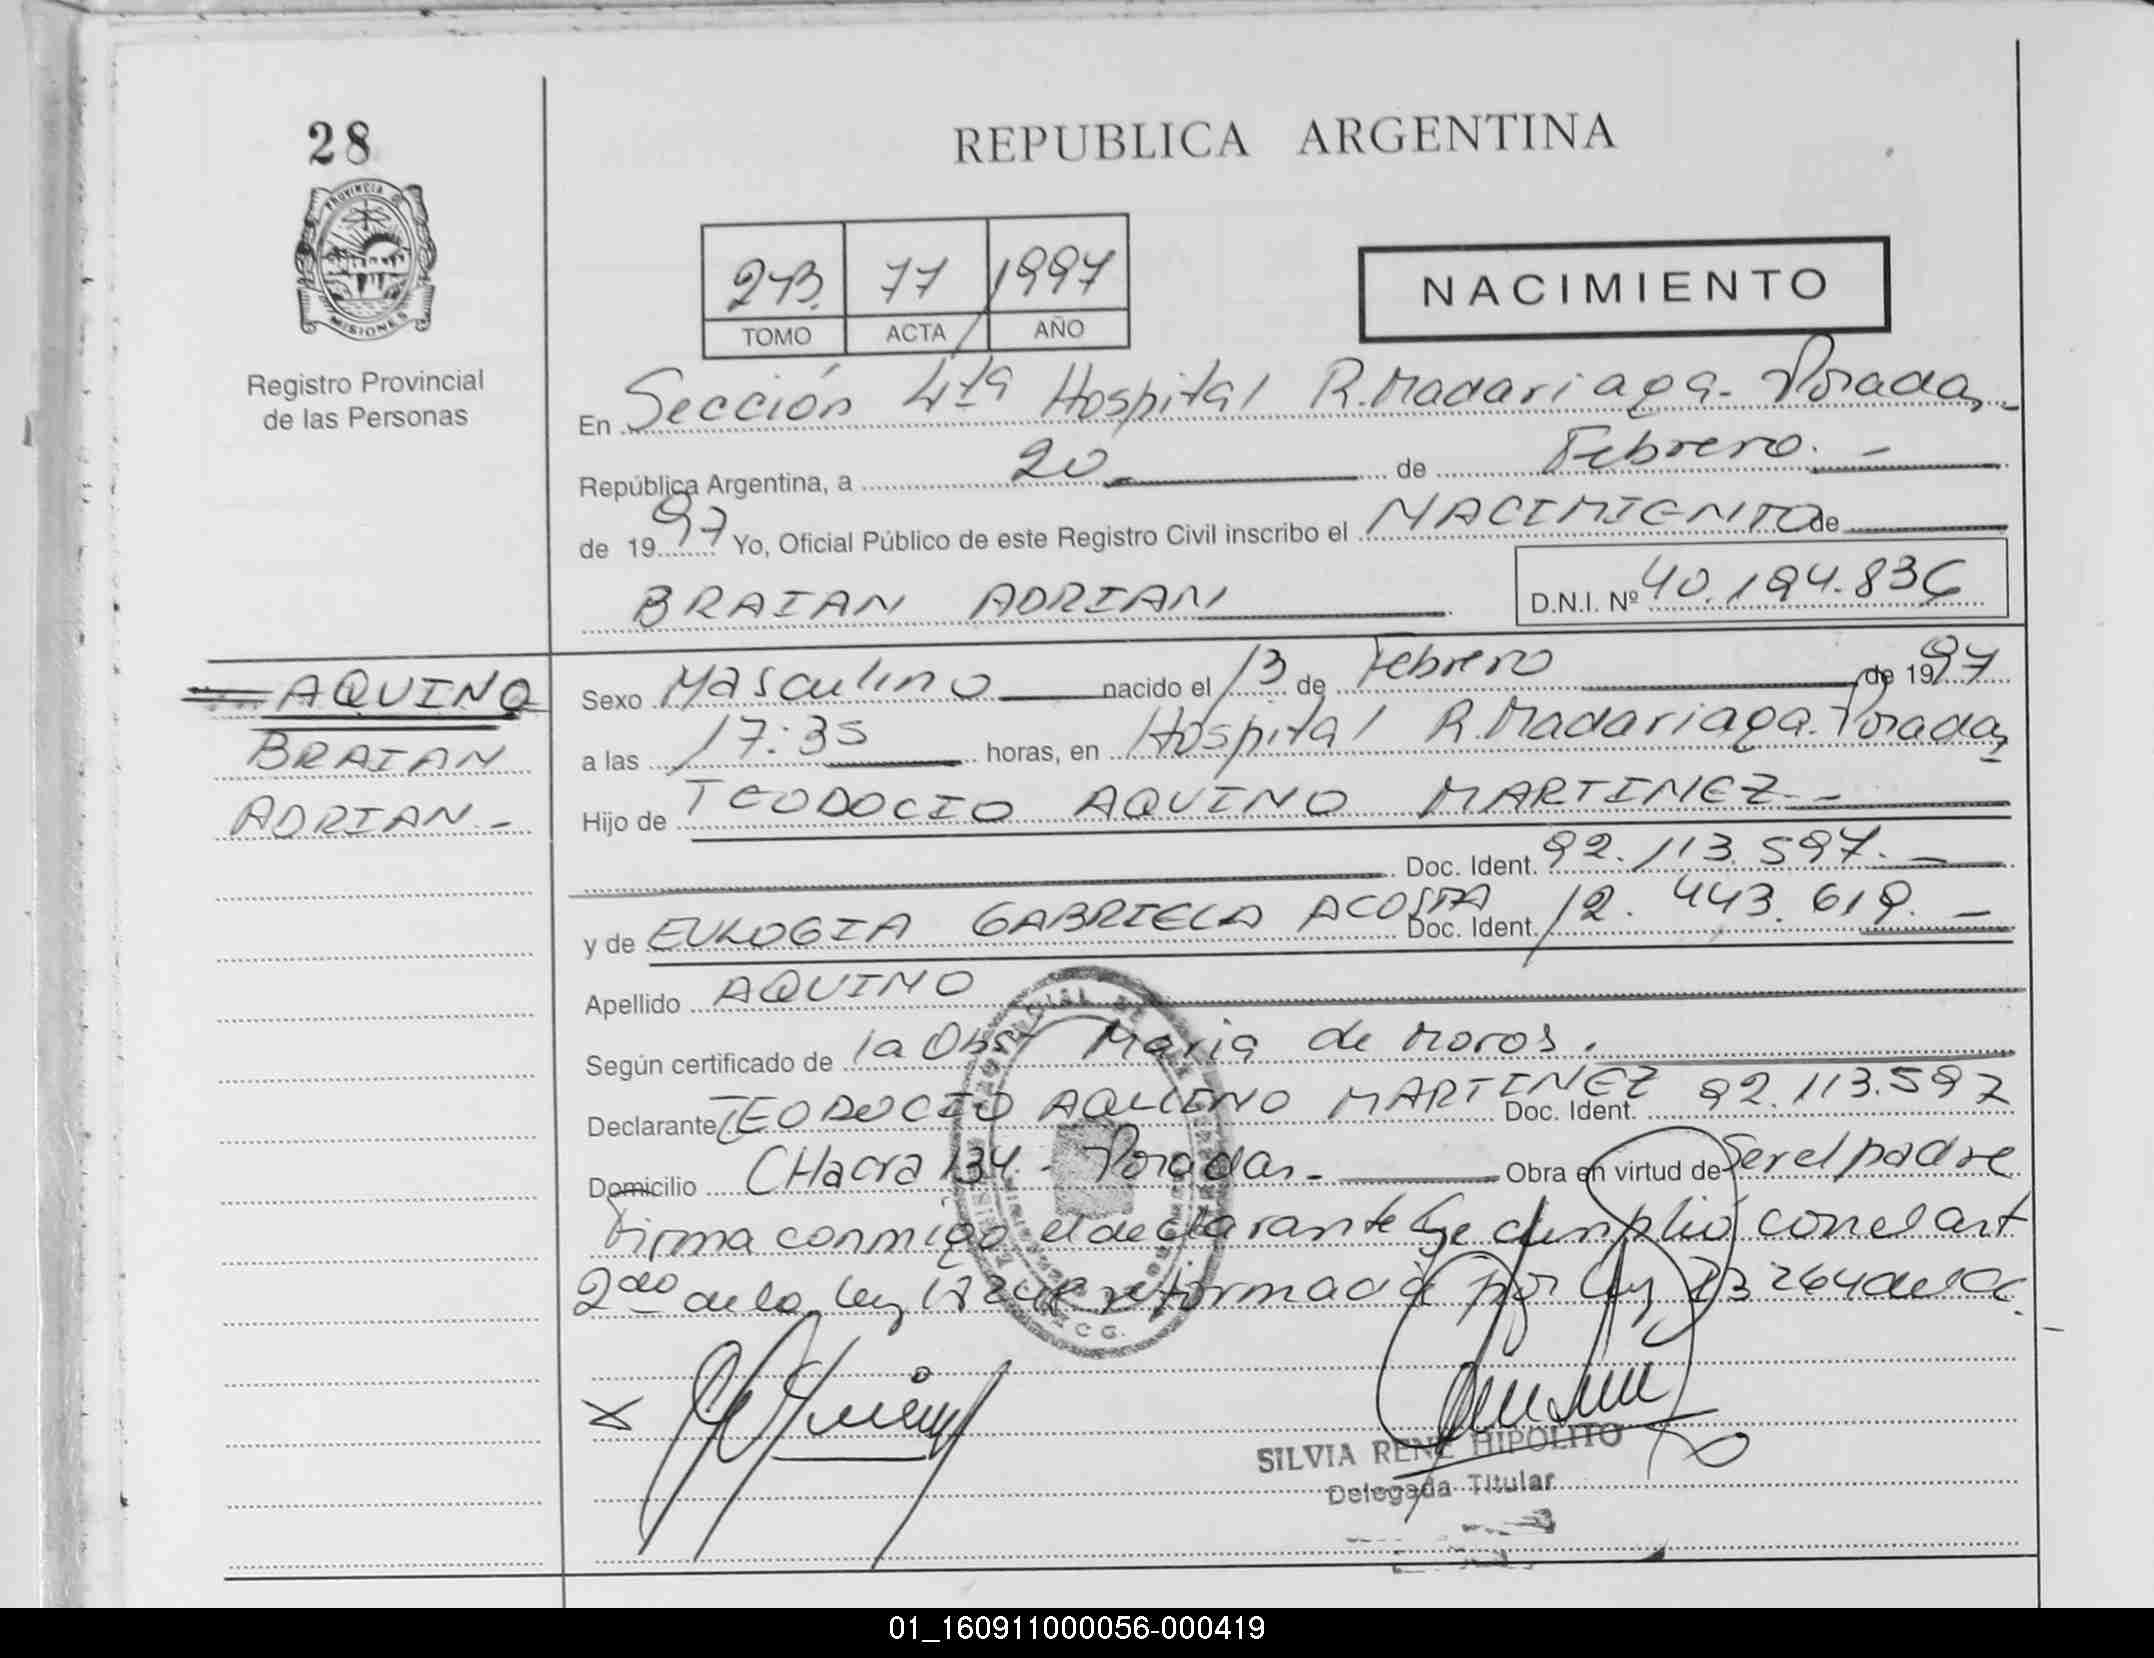 28
PROVINCIA
MISIONES
Registro Provincial
de las Personas
AQUINO
BRAIAN
ADRIAN.-
REPUBLICA ARGENTINA
243. 77 1997
TOMO ACTA AÑO
NACIMIENTO
En Sección 4ta Hospital R. Madariaga - Posadas.-
República Argentina, a 20 de Febrero. -
de 1997 Yo, Oficial Público de este Registro Civil inscribo el NACIMIENTO de
BRAIAN ADRIAN D.N.I. Nº 40.194.836
Sexo Masculino nacido el 13 de Febrero de 1997
a las 17:35 horas, en Hospital R. Madariaga. Posadas
Hijo de TEODOCIO AQUINO MARTINEZ.-
Doc. Ident. 92.113.597.-
y de EULOGIA GABRIELA ACOSTA Doc. Ident. 12.443.619.-
Apellido AQUINO
Según certificado de la Obst Maria de Moros.
Declarante TEODOCIO AQUINO MARTINEZ Doc. Ident. 92.113.597
Domicilio CHacra 134 - Posadas.- Obra en virtud de Ser el padre
Firma conmigo el declarante Se cumplió con el art
2do de la Ley reformada por Ley 23264 del
SILVIA RENE HIPOLITO
Delegada Titular
01_160911000056-000419